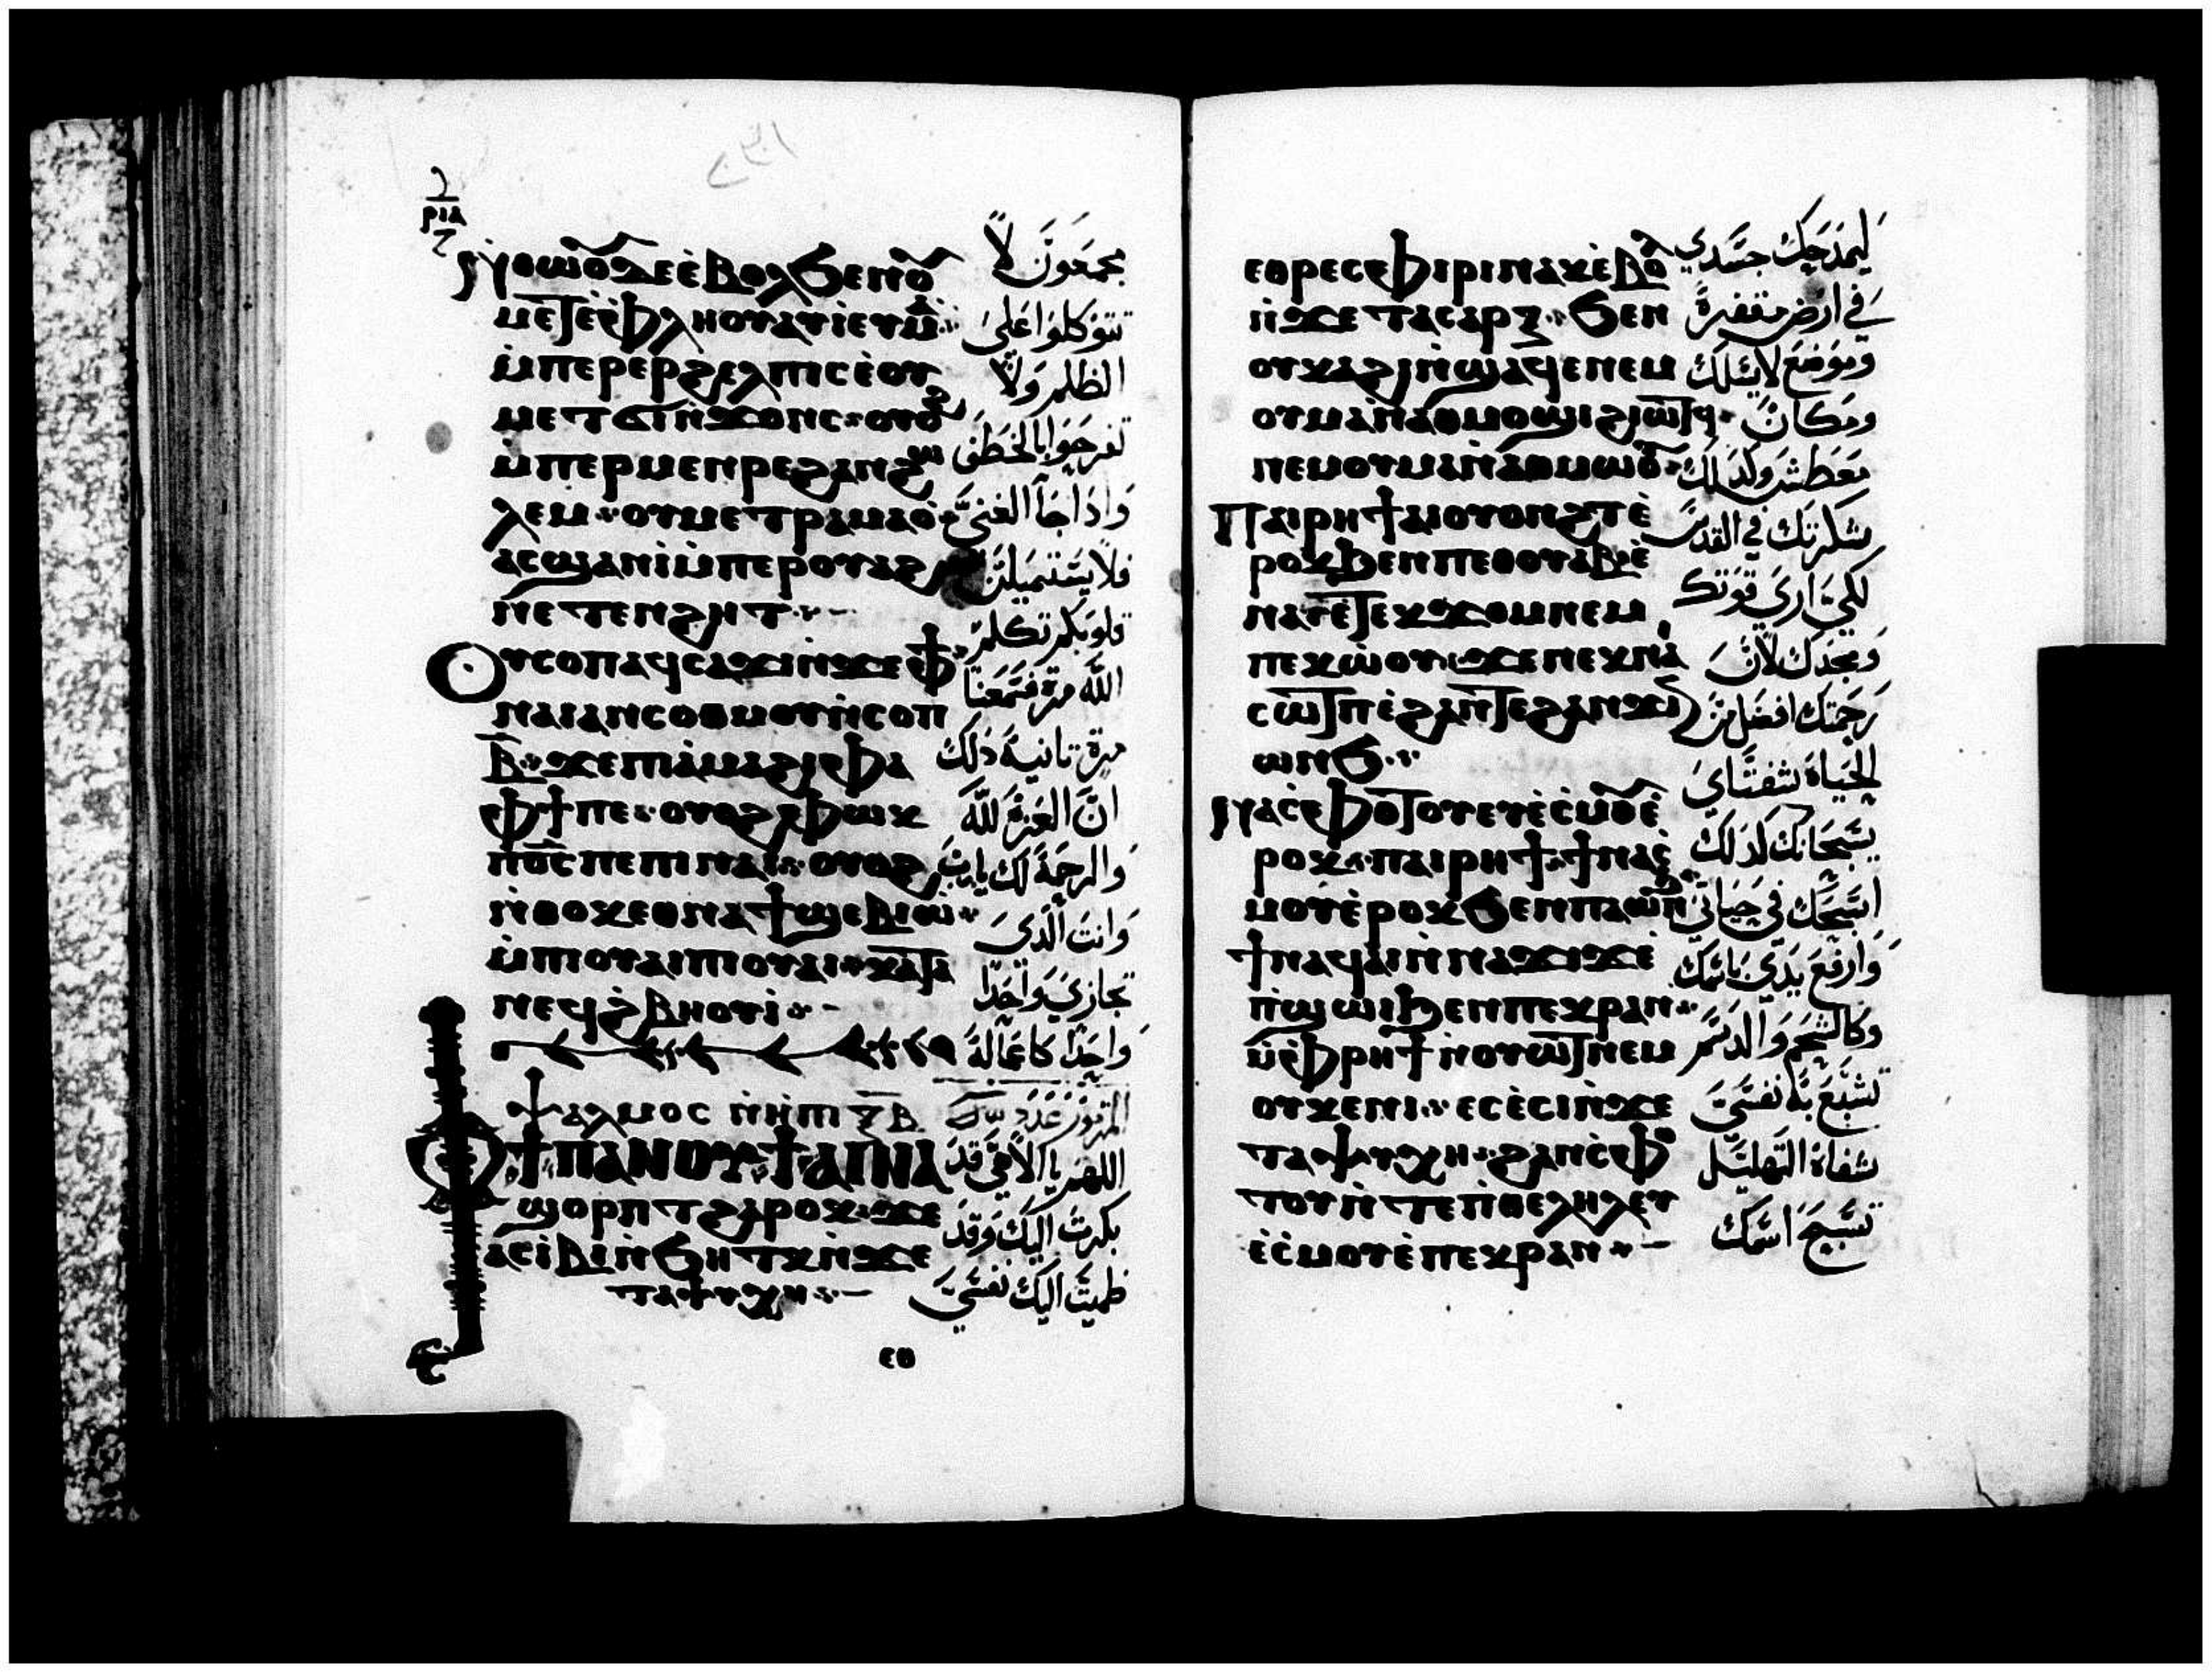 ⲛ̀ⲑⲱⲟⲩⲇⲉⲉ̀ⲃⲟⲗϧⲉⲛⲟⲩ
ⲙⲉⲧⲉ̀ⲫⲗⲏⲟⲩⲁⲩⲓ̀ⲉⲩⲙⲁ
ⲙ̀ⲡⲉⲣⲉⲣϩⲉⲗⲡⲓⲥⲉ̀ⲟⲩ
ⲙⲉⲧϭⲓⲛ̀ϫⲟⲛⲥ ⲟⲩⲟϩ
ⲙ̀ⲡⲉⲣⲙⲉⲛⲣⲉϩⲁⲛϩⲱ
ⲗⲉⲙ ⲟⲩⲙⲉⲧⲣⲁⲙⲁⲟ̀
ⲁⲥϣⲁⲛⲓ̀ⲙ̀ⲡⲉⲣⲟⲩⲁϩ
ⲛ̀ⲉⲧⲉⲛϩⲏⲧ
ⲟⲩⲥⲟⲡⲁϥⲥⲁϫⲓⲛ̀ϫⲉⲫϯ
ⲛⲁⲓⲁⲛⲥⲟⲑⲙⲟⲩⲛ̀ⲥⲟⲡ
ⲃ̅ ϫⲉⲡⲓⲁ̀ⲙⲁϩⲓⲫⲁ
ⲫϯⲡⲉ ⲟⲩⲟϩⲫⲱⲕ
ⲡ̀ⲟ̅ⲥ̅ⲡⲉⲡⲓⲛⲁⲓ ⲟⲩⲟϩ
ⲛ̀ⲑⲟⲕⲉⲑⲛⲁϯϣⲉⲃⲓⲱ̀
ⲙ̀ⲡⲓⲟⲩⲁⲓⲡⲓⲟⲩⲁⲓ ⲕⲁⲧⲁ
ⲛⲉϥϩ̀ⲃⲏⲟⲩⲓ̀
ⲯⲁⲗⲙⲟⲥ ⲝ̅ⲃ̅
ⲫϯⲡⲁⲛⲟⲩϯⲁⲓⲛⲁ
ϣⲟⲣⲡⲧϩⲁⲣⲟⲕ ϫⲉ
ⲁⲥⲓ̀ⲃⲓⲛ̀ϧⲏⲧⲕⲛ̀ϫⲉ
ⲧⲁⲯⲩⲭⲏ
مجمعون لا
تتوكلوا على
الظلم ولا
تفرحوا بالخطف
واذا جآ الغنى
فلا يستميلن
قلوبكم تكلم
الله مرة فسمعنا
مرة تانية ذلك
ان العزة لله
والرحمة لك يارب
وانت الذي
تجازي واحدا
واحدا كاعماله
المزمور عدد
اللهم يا الاهي قد
بكرت اليك وقد
ظميت اليك نفسي
ⲉⲑ
ⲉⲑⲣⲉⲥⲫⲓⲣⲓⲛⲁⲕⲉ̀ⲃⲟⲗ
ⲛ̀ϫⲉⲧⲁⲥⲁⲣⲝ ϧⲉⲛ
ⲟⲩⲕⲁϩⲓⲛ̀ϣⲁϥⲉⲛⲉⲙ
ⲟⲩⲙⲁⲛ̀ⲁⲑⲙⲟϣⲓϩⲓⲱⲧϥ
ⲛⲉⲙⲟⲩⲙⲁⲛ̀ⲁⲑⲙⲱⲟⲩ
ⲡⲁⲓⲣⲏϯⲁⲓⲟⲩⲟⲛϩⲧⲉ̀
ⲣⲟⲕϧⲉⲛⲡⲉⲑⲟⲩⲁⲃⲉ̀
ⲛⲁⲩⲉ̀ⲧⲉⲕϫⲟⲙⲛⲉⲙ
ⲡⲉⲕⲱ̀ⲟⲩ ϫⲉⲡⲉⲕⲛⲁⲓ
ⲥⲱⲧⲡⲉ̀ϩⲁⲛⲧⲉϩⲁⲛϫⲓ
ⲱⲛϧ
ⲛⲁⲥ̀ⲫⲟⲧⲟⲩⲉⲩⲉ̀ⲥ̀ⲙⲟⲩⲉ̀
ⲣⲟⲕ ⲡⲁⲓⲣⲏϯ ϯⲛⲁⲥ̀
ⲙⲟⲩⲉ̀ⲣⲟⲕϧⲉⲛⲡⲁⲱⲛϧ
ϯⲛⲁϥⲁⲓⲛ̀ⲛⲁϫⲓϫⲉ̀
ⲡ̀ϣⲱⲓϧⲉⲛⲡⲉⲕⲣⲁⲛ
ⲙ̀ⲫⲣⲏϯⲛ̀ⲟⲩⲱⲧⲛⲉⲙ
ⲟⲩⲕⲉⲛⲓ ⲉⲥⲉ̀ⲥⲓⲛ̀ϫⲉ
ⲧⲁⲯⲩⲭⲏ ϩⲁⲛⲥ̀ⲫⲟ
ⲧⲟⲩⲛ̀ⲧⲉⲡ̀ⲑⲉⲗⲏⲗⲉⲩ
ⲉ̀ⲥ̀ⲙⲟⲩⲉ̀ⲡⲉⲕⲣⲁⲛ
ليمدحك جسدي
في ارض مقفرة
وموضع لا يسلك
ومكان
معطش ولذلك
شكرتك في القدس
لكي ارى قوتك
ومجدك لان
رحمتك افضل من
الحياة شفتاي
يسبحانك لذلك
اسبحك في حياتي
وارفع يدي باسمك
وكالشحم والدسم
تشبع به نفسي
شفاة التهليل
تسبح اسمك